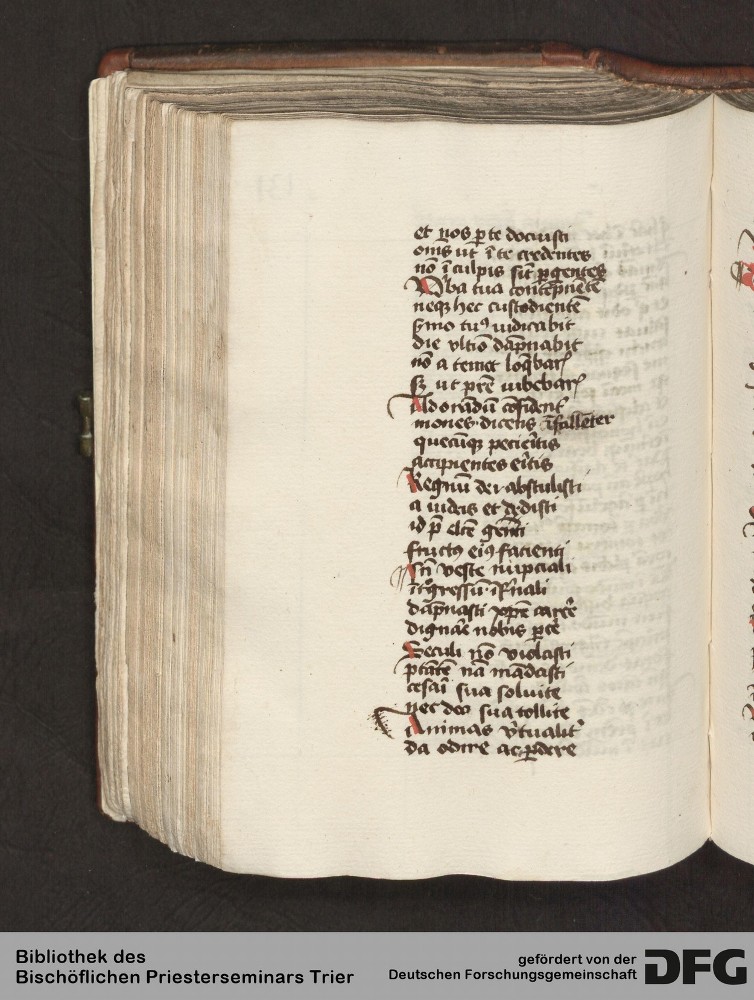 et nos p te docuisti
om̄s ut ī te credentes
nō ī culpis sīt pgentes
Vba tua contēpnēte
neqꝫ hec custodientē
s̄mo tuꝰ iudicabit
die vltīo dāpnabit
nō a temet loq̄bar
sꝫ ut pr̄e iubebar
Ad orādū cōfident
mones dicens īfallēter
quecūqꝫ pecieritis
accipientes eritis
Regnū dei abstulisti
a iudeis et dedisti
id p genti
fructꝰ eiꝰ facienti
Sn̄ veste nupciali
īgressū īfernali
dāpnasti xp̄e carcere
dignare nobis pce
Seculi nō violasti
ptātē nā mādasti
cesari sua soluite
nec deo sua tollite
Animas v̄tualit
da odire ac pdere
Bibliothek des
Bischöflichen Priesterseminars Trier
gefördert von der
Deutschen Forschungsgemeinschaft
DFG